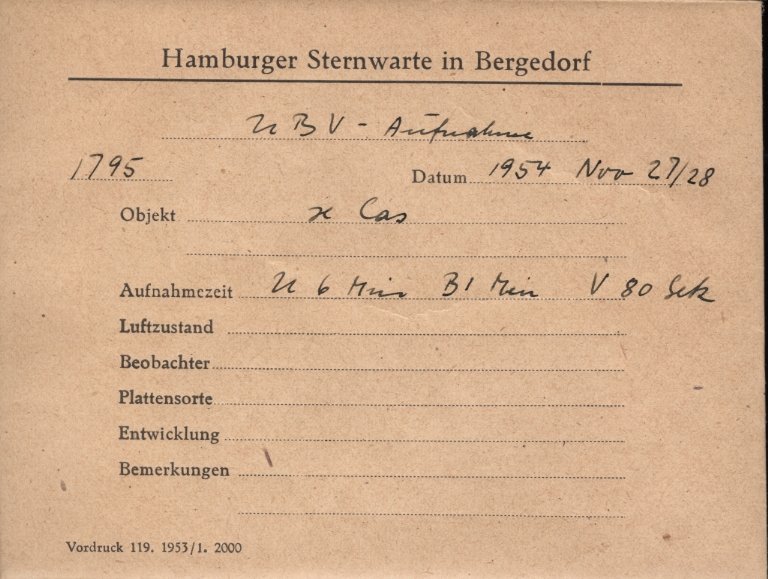 Hamburger Sternwarte in Bergedorf
UBV - Aufnahme
1795 Datum 1954 Nov 27/28
Objekt ϰ Cas
Aufnahmezeit U 6 Min B 1 Min V 80 Sek
Luftzustand
Beobachter
Plattensorte
Entwicklung
Bemerkungen
Vordruck 119. 1953/1. 2000